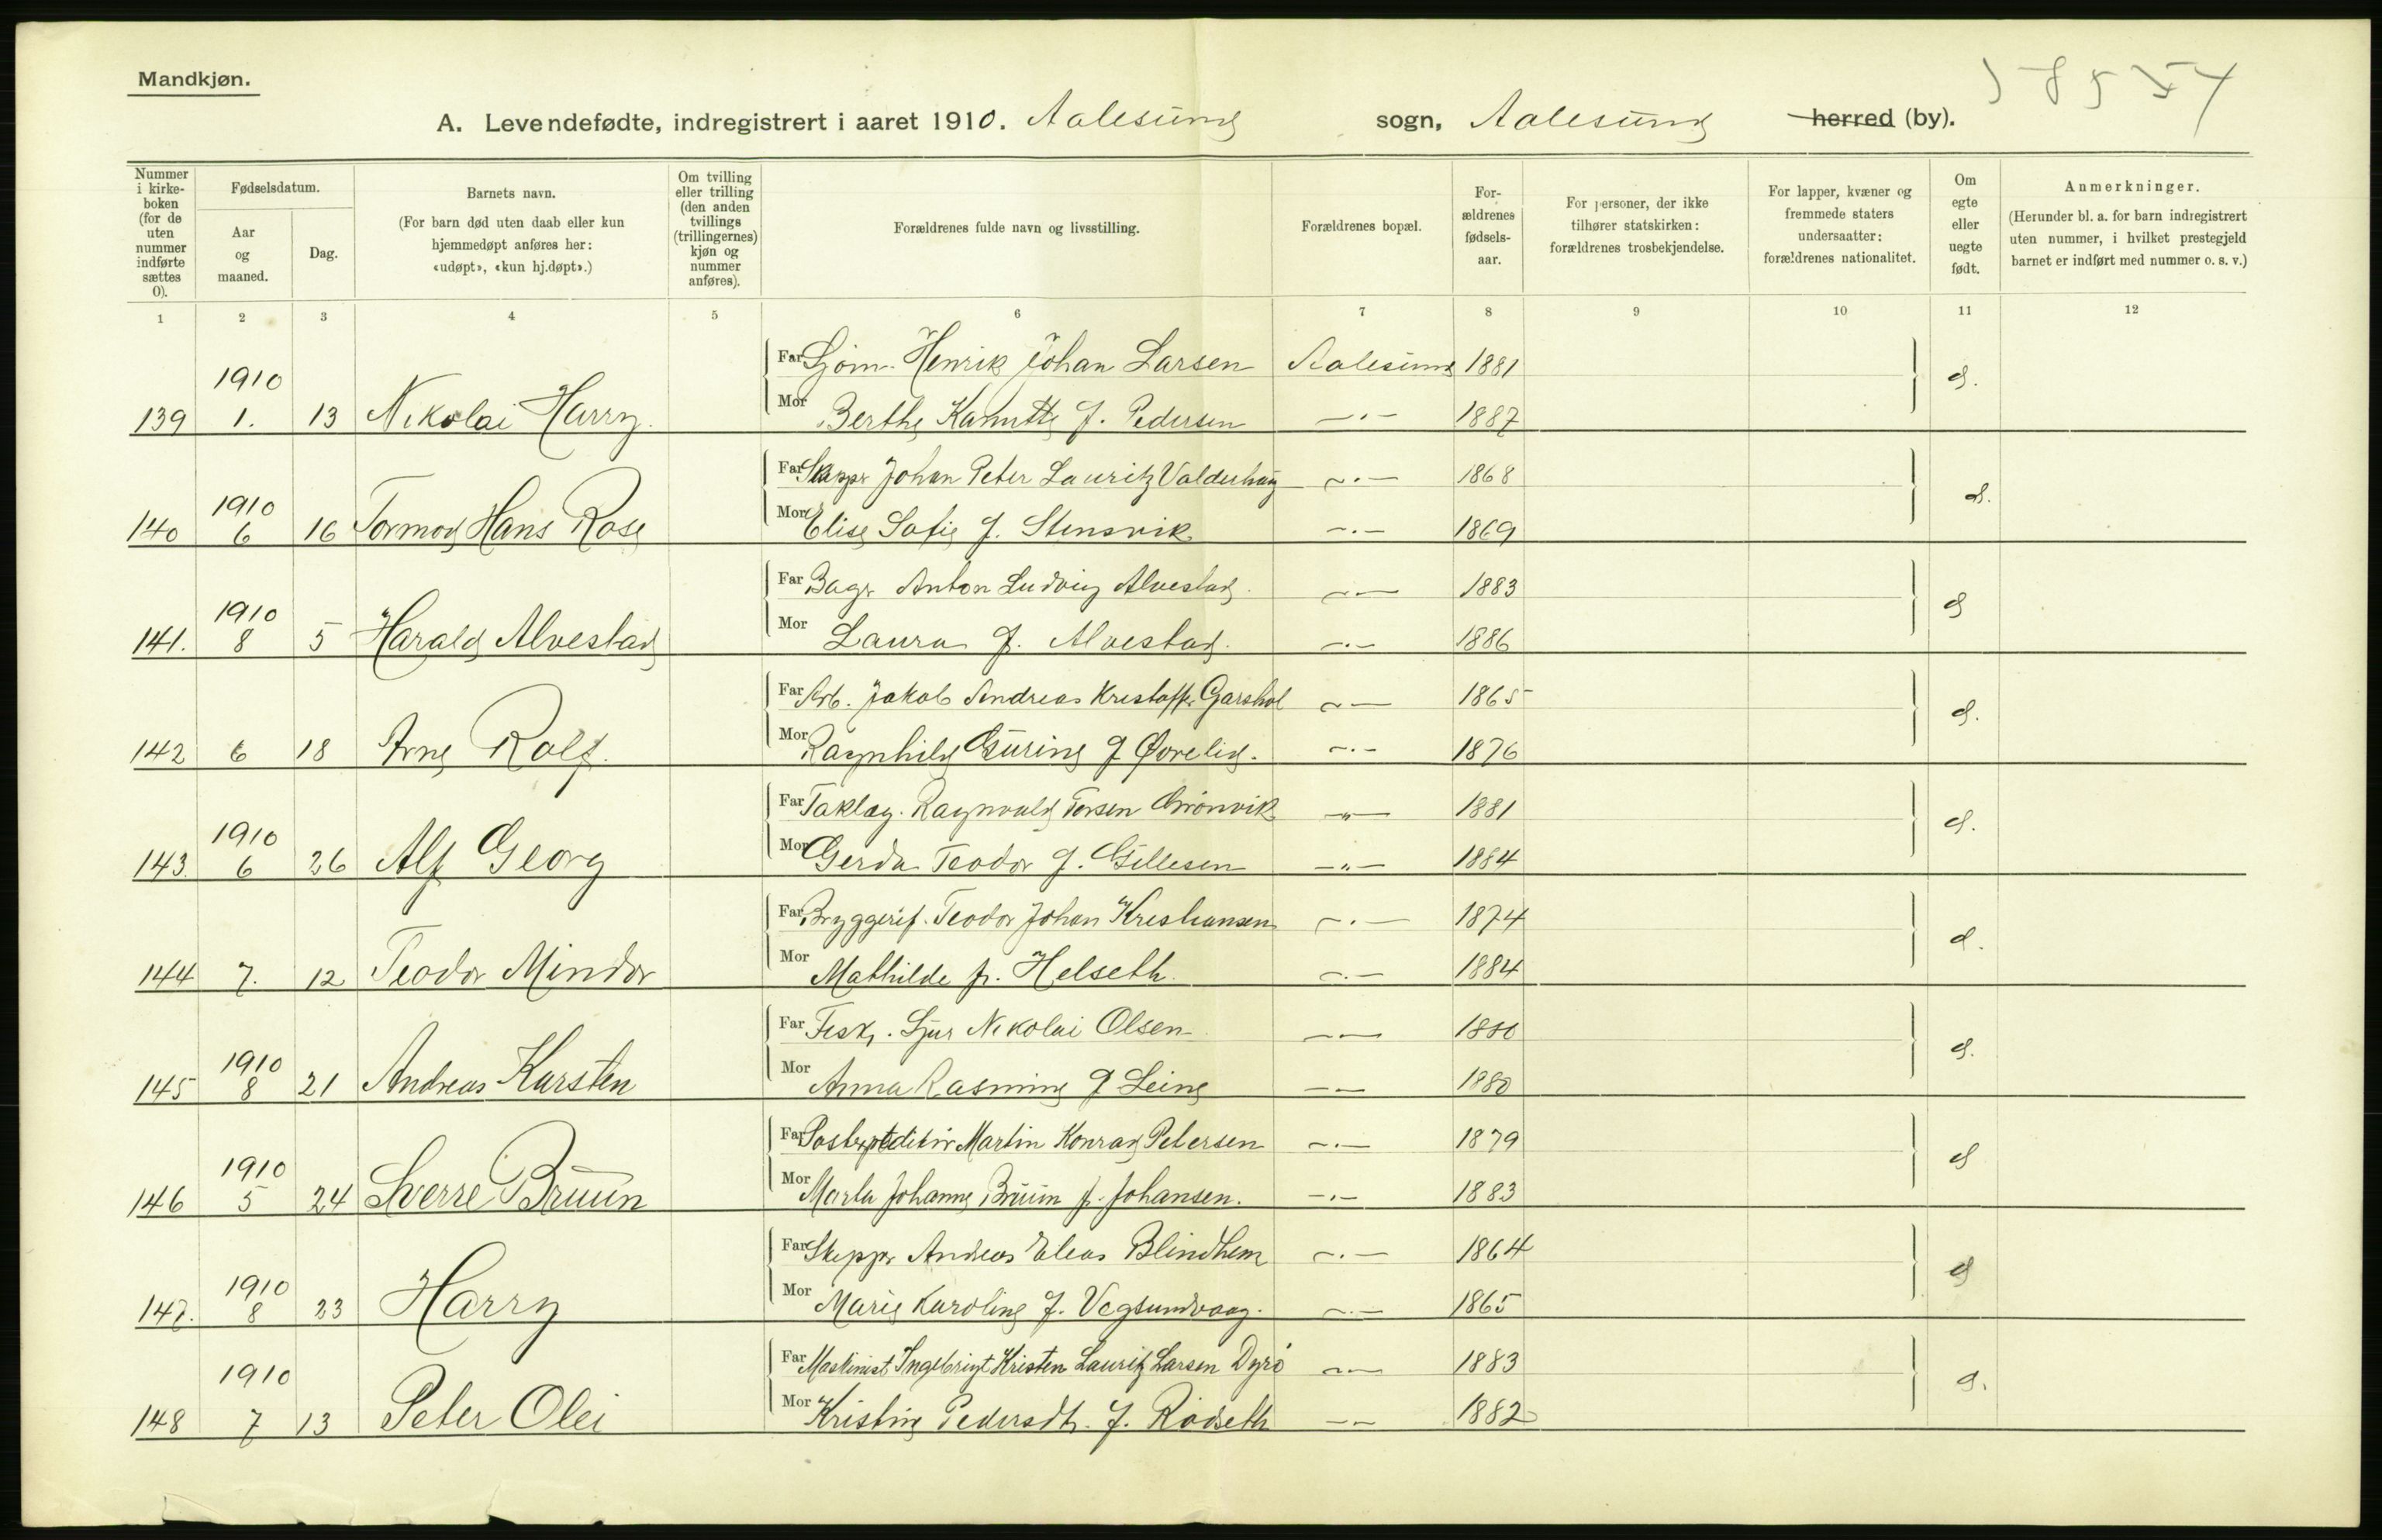 Mandkjøn.
A. Levendefødte, indregistrert i aaret 1910. Aalesund sogn, Aalesund herred (by).
Nummer i kirkeboken (for de uten nummer indførte sættes 0).
Fødselsdatum.
Aar og maaned.
Dag.
Barnets navn.
(For barn død uten daab eller kun hjemmedøpt anføres her: «udøpt», «kun hj.døpt».)
Om tvilling eller trilling (den anden tvillings (trillingernes) kjøn og nummer anføres).
Forældrenes fulde navn og livsstilling.
Forældrenes bopæl.
Forældrenes fødselsaar.
For personer, der ikke tilhører statskirken: forældrenes trosbekjendelse.
For lapper, kvæner og fremmede staters undersaatter: forældrenes nationalitet.
Om egte eller uegte født.
Anmerkninger.
(Herunder bl. a. for barn indregistrert uten nummer, i hvilket prestegjeld barnet er indført med nummer o. s. v.)
1 2 3 4 5 6 7 8 9 10 11 12
Far Sjøm. Henrik Johan Larsen Aalesund 1881
139 1910 1. 13 Nikolai Harry. Mor Berthe f. Pedersen —"— 1887
Far Skippr Johan Peter Lauritz Valderhaug —"— 1868
140 1910 6 16 Tormod Hans Rose Mor Elise Sofie f. Stensvik —"— 1869
Far Bagr Anton Ludvig Alvestad. —"— 1883
141. 1910 8 5 Harald Alvestad Mor Laura f. Alvestad. —"— 1886
Far Arb. Jakob Andreas Kristoffr Garshol —"— 1865
142 6 18 Arne Rolf. Mor Ragnhild Gurine f Øvrelid. —"— 1876
Far Taklæg. Ragnvald Torsen Grönvik —"— 1881
143. 1910 6 26 Alf Georg Mor Gerda Teodor f. Gillesen —"— 1884
Far Bryggerif. Teodor Johan Kristiansen —"— 1874
144 7. 12 Teodor Mindor Mor Mathilde f. Helseth. —"— 1884
Far Fisk. Sjur Nikolai Olsen —"— 1880
145 1910 8 21 Andreas Karsten Mor Anna Rasmine f Leine —"— 1880
Far Postexpeditör Martin Konrad Petersen —"— 1879
146 1910 5 24 Sverre Bruun Mor Marta Johanne Bruun f. Johansen. —"— 1883
Far Skippr Andreas Elias Blindhem —"— 1864
147. 1910 8 23 Harry Mor Marie Karoline f. Vegsundvaag. —"— 1865
Far Maskinist Ingebrigt Kristen Lauritz Larsen Dyrö —"— 1883
148 1910 7 13 Peter Olei Mor Kristine Pedersdt. f. Rödseth —"— 1882